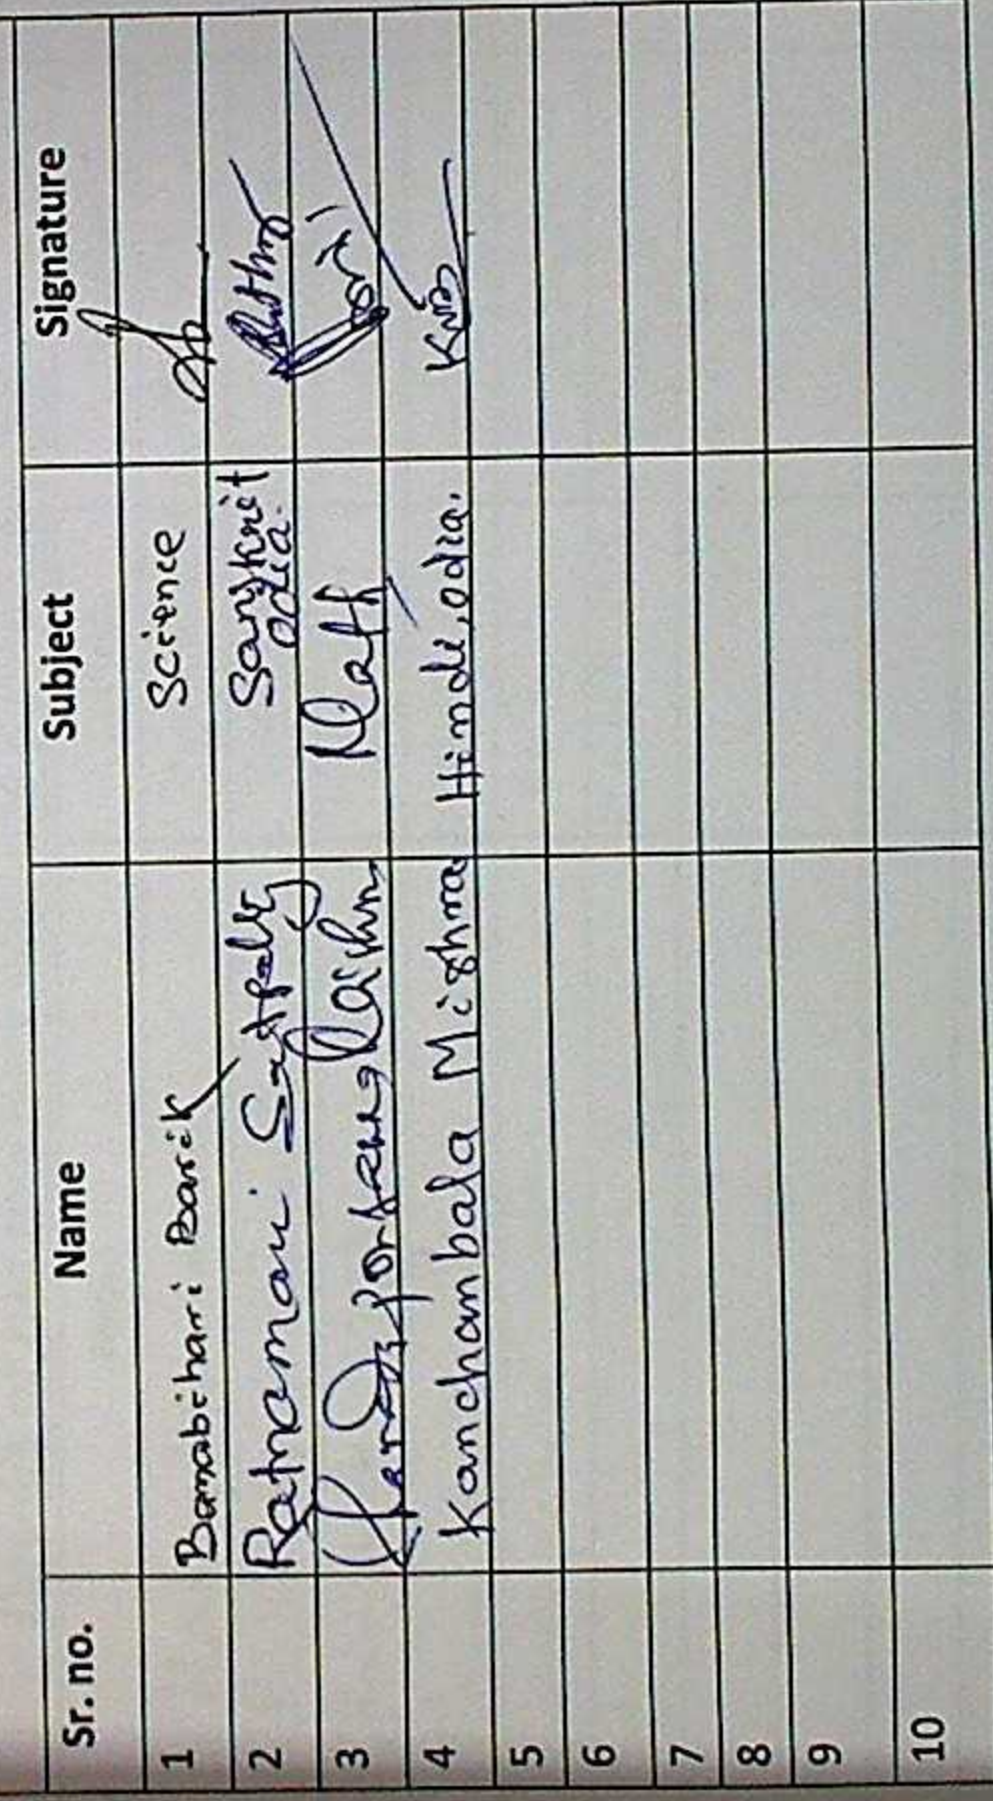 Sr. no. Name Subject Signature
1 Banabihari Barik Science
2 Ratnamani Satpathy Sanskrit
Odia.
3 Math
4 Kanchanbala Mishra Hindi, odia.
5
6
7
8
9
10